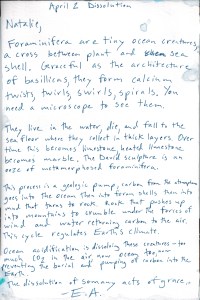 April 2 Dissolution
Natalie,
Foraminifera are tiny ocean creatures,
a cross between plant and sea
shell. Graceful as the architecture
of basillicas, they form calcium
twists, twirls, swirls, spirals. You
need a microscope to see them.
They live in the water, die, and fall to the
sea floor where they collect in thick layers. Over
time this becomes limestone, heated limestone
becomes marble. The David sculpture is an
ooze of metamorphosed foraminifera.
This process is a geologic pump, carbon from the atmosphere
goes into the ocean then into foram shells then into
mud that turns to rock. Rock that pushes up
into mountains to crumble under the forces of
wind and water returning carbon to the air.
This cycle regulates Earth's climate.
Ocean acidification is dissolving these creatures - too
much CO2 in the air, now ocean too, now
preventing the burial and pumping of carbon into the
Earth.
The dissolution of so many acts of grace.
E.A.